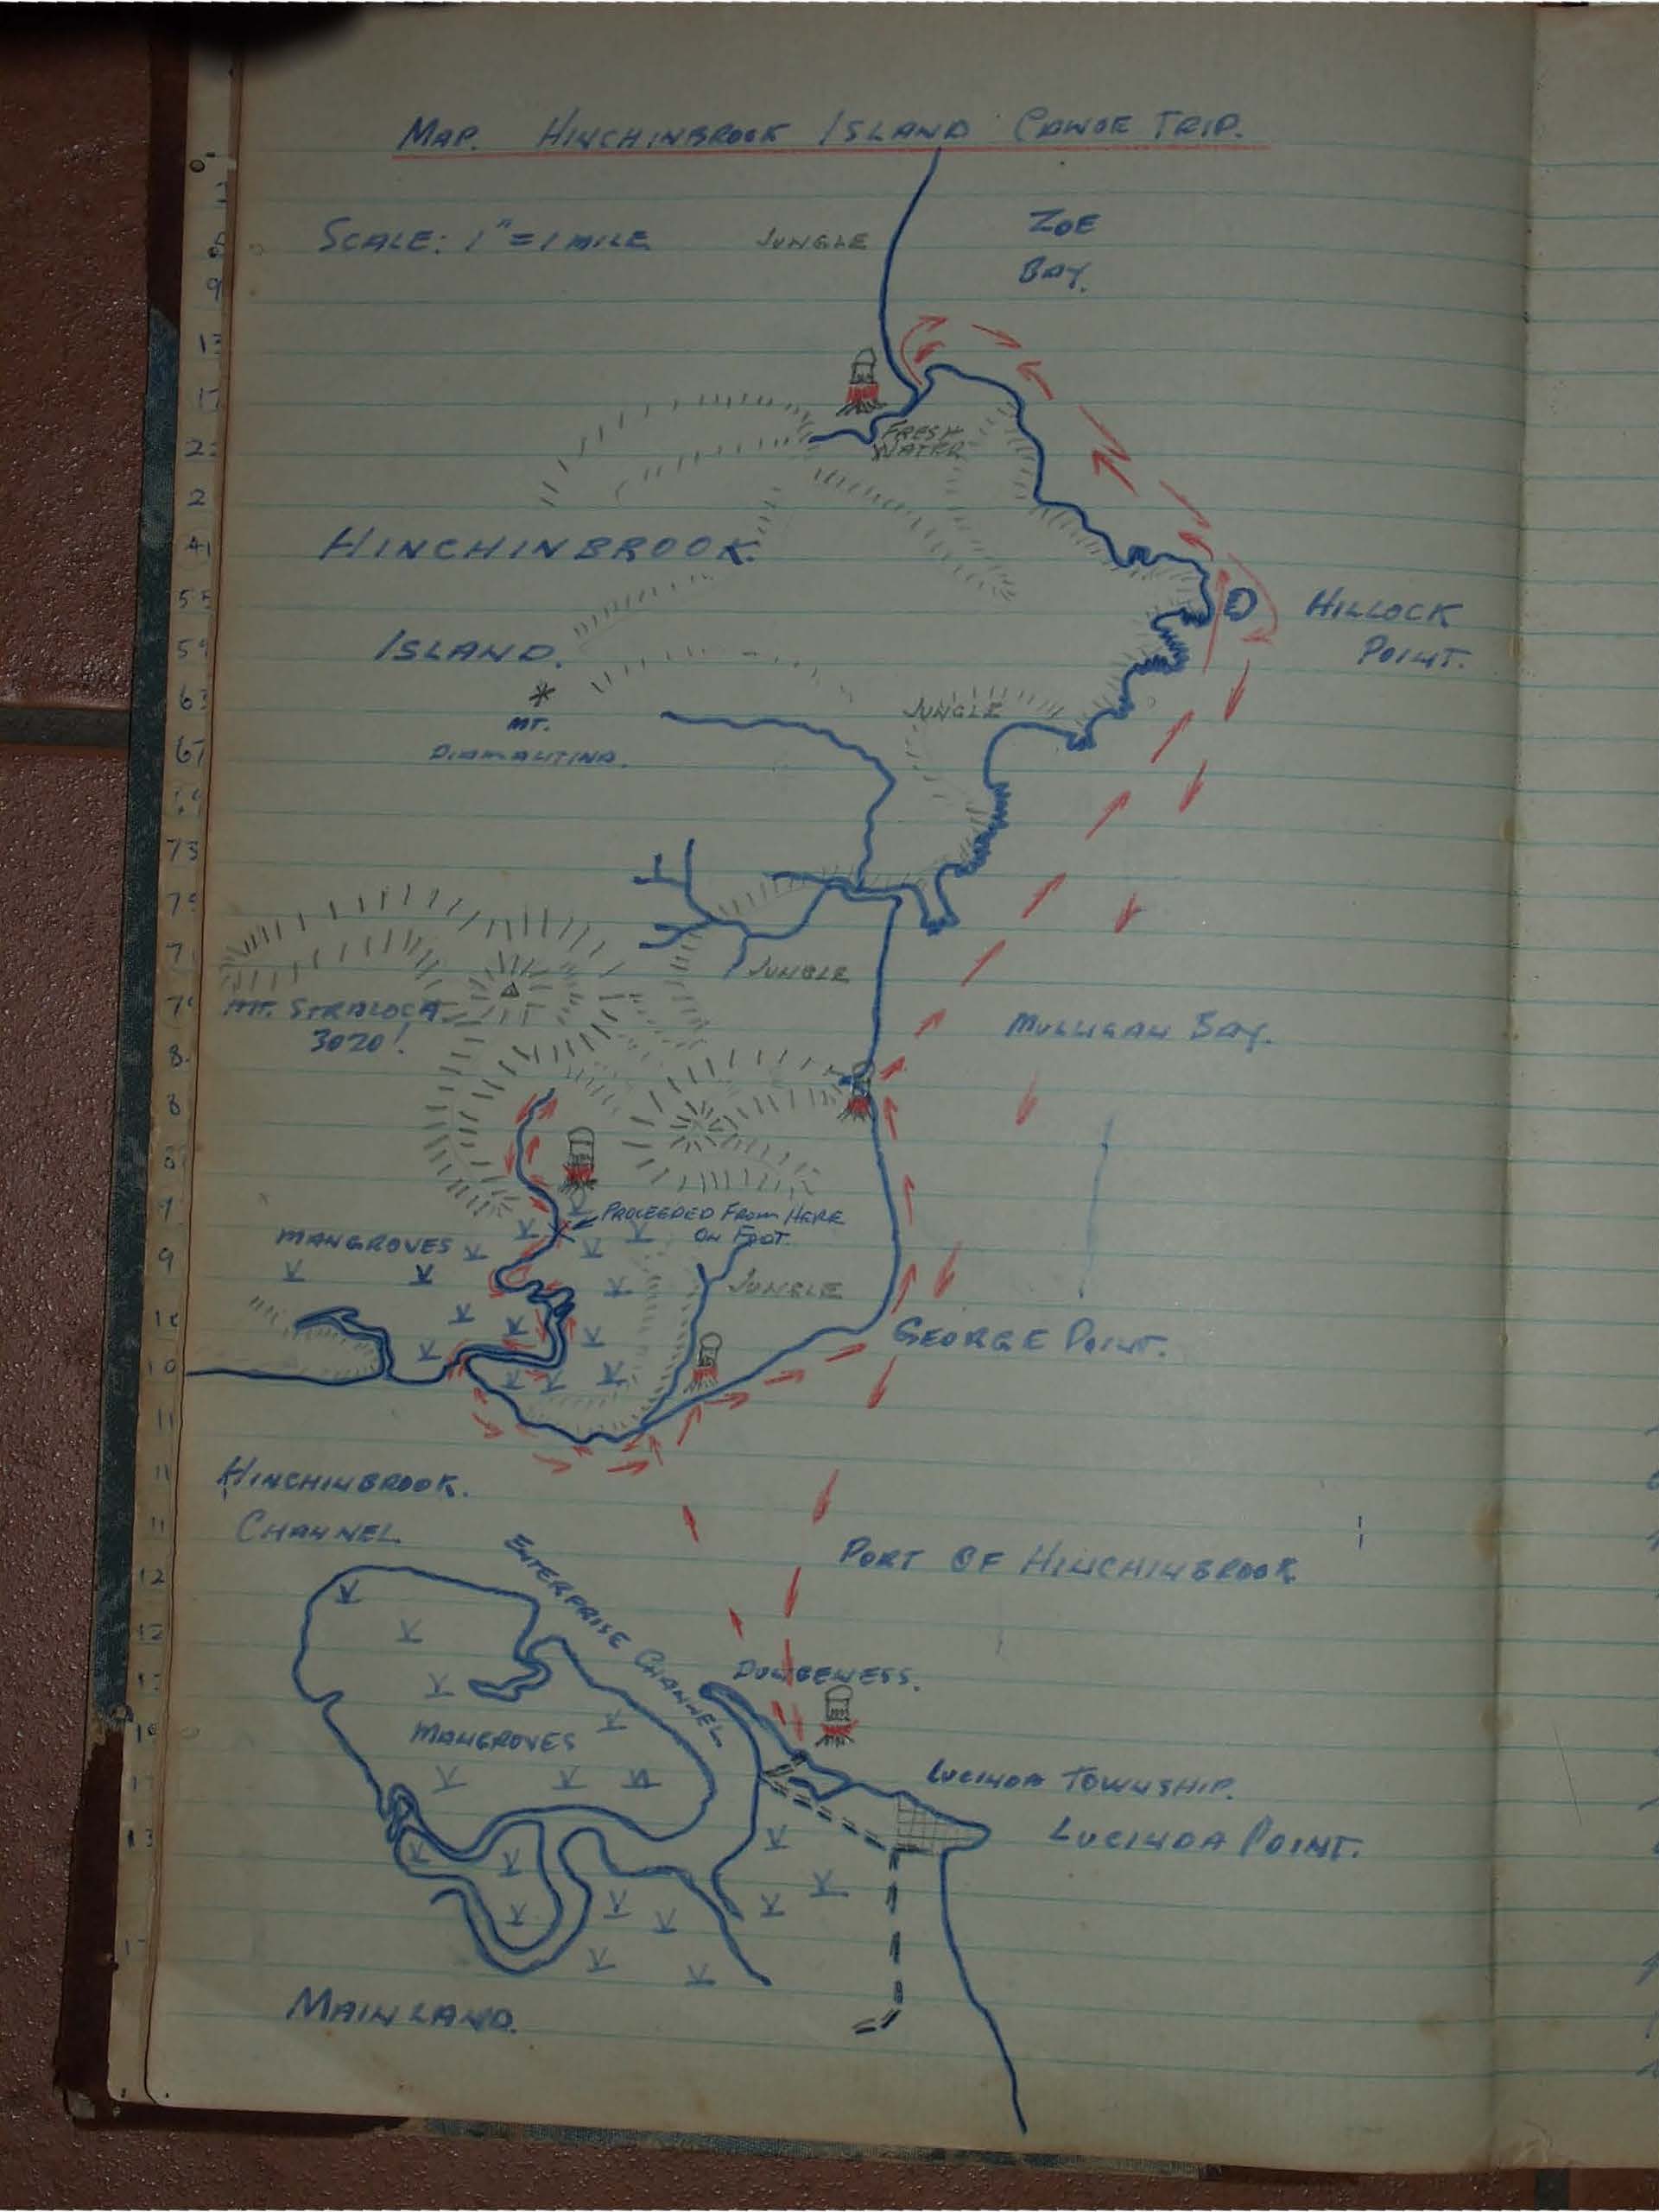 MAP. HINCHINBROOK ISLAND CANOE TRIP.
SCALE: 1" = 1 MILE
JUNGLE
ZOE
BAY.
FRESH
WATER
HINCHINBROOK.
ISLAND.
HILLOCK
POINT.
*
MT.
DIAMANTINA.
JUNGLE
JUNGLE
MT. STRALOCH
3020'
MULLIGAN BAY.
PROCEEDED FROM HERE
ON FOOT.
MANGROVES
JUNGLE
GEORGE POINT.
HINCHINBROOK.
CHANNEL
ENTERPRISE CHANNEL
PORT OF HINCHINBROOK
DUNGENESS.
MANGROVES
LUCINDA TOWNSHIP.
LUCINDA POINT.
MAINLAND.